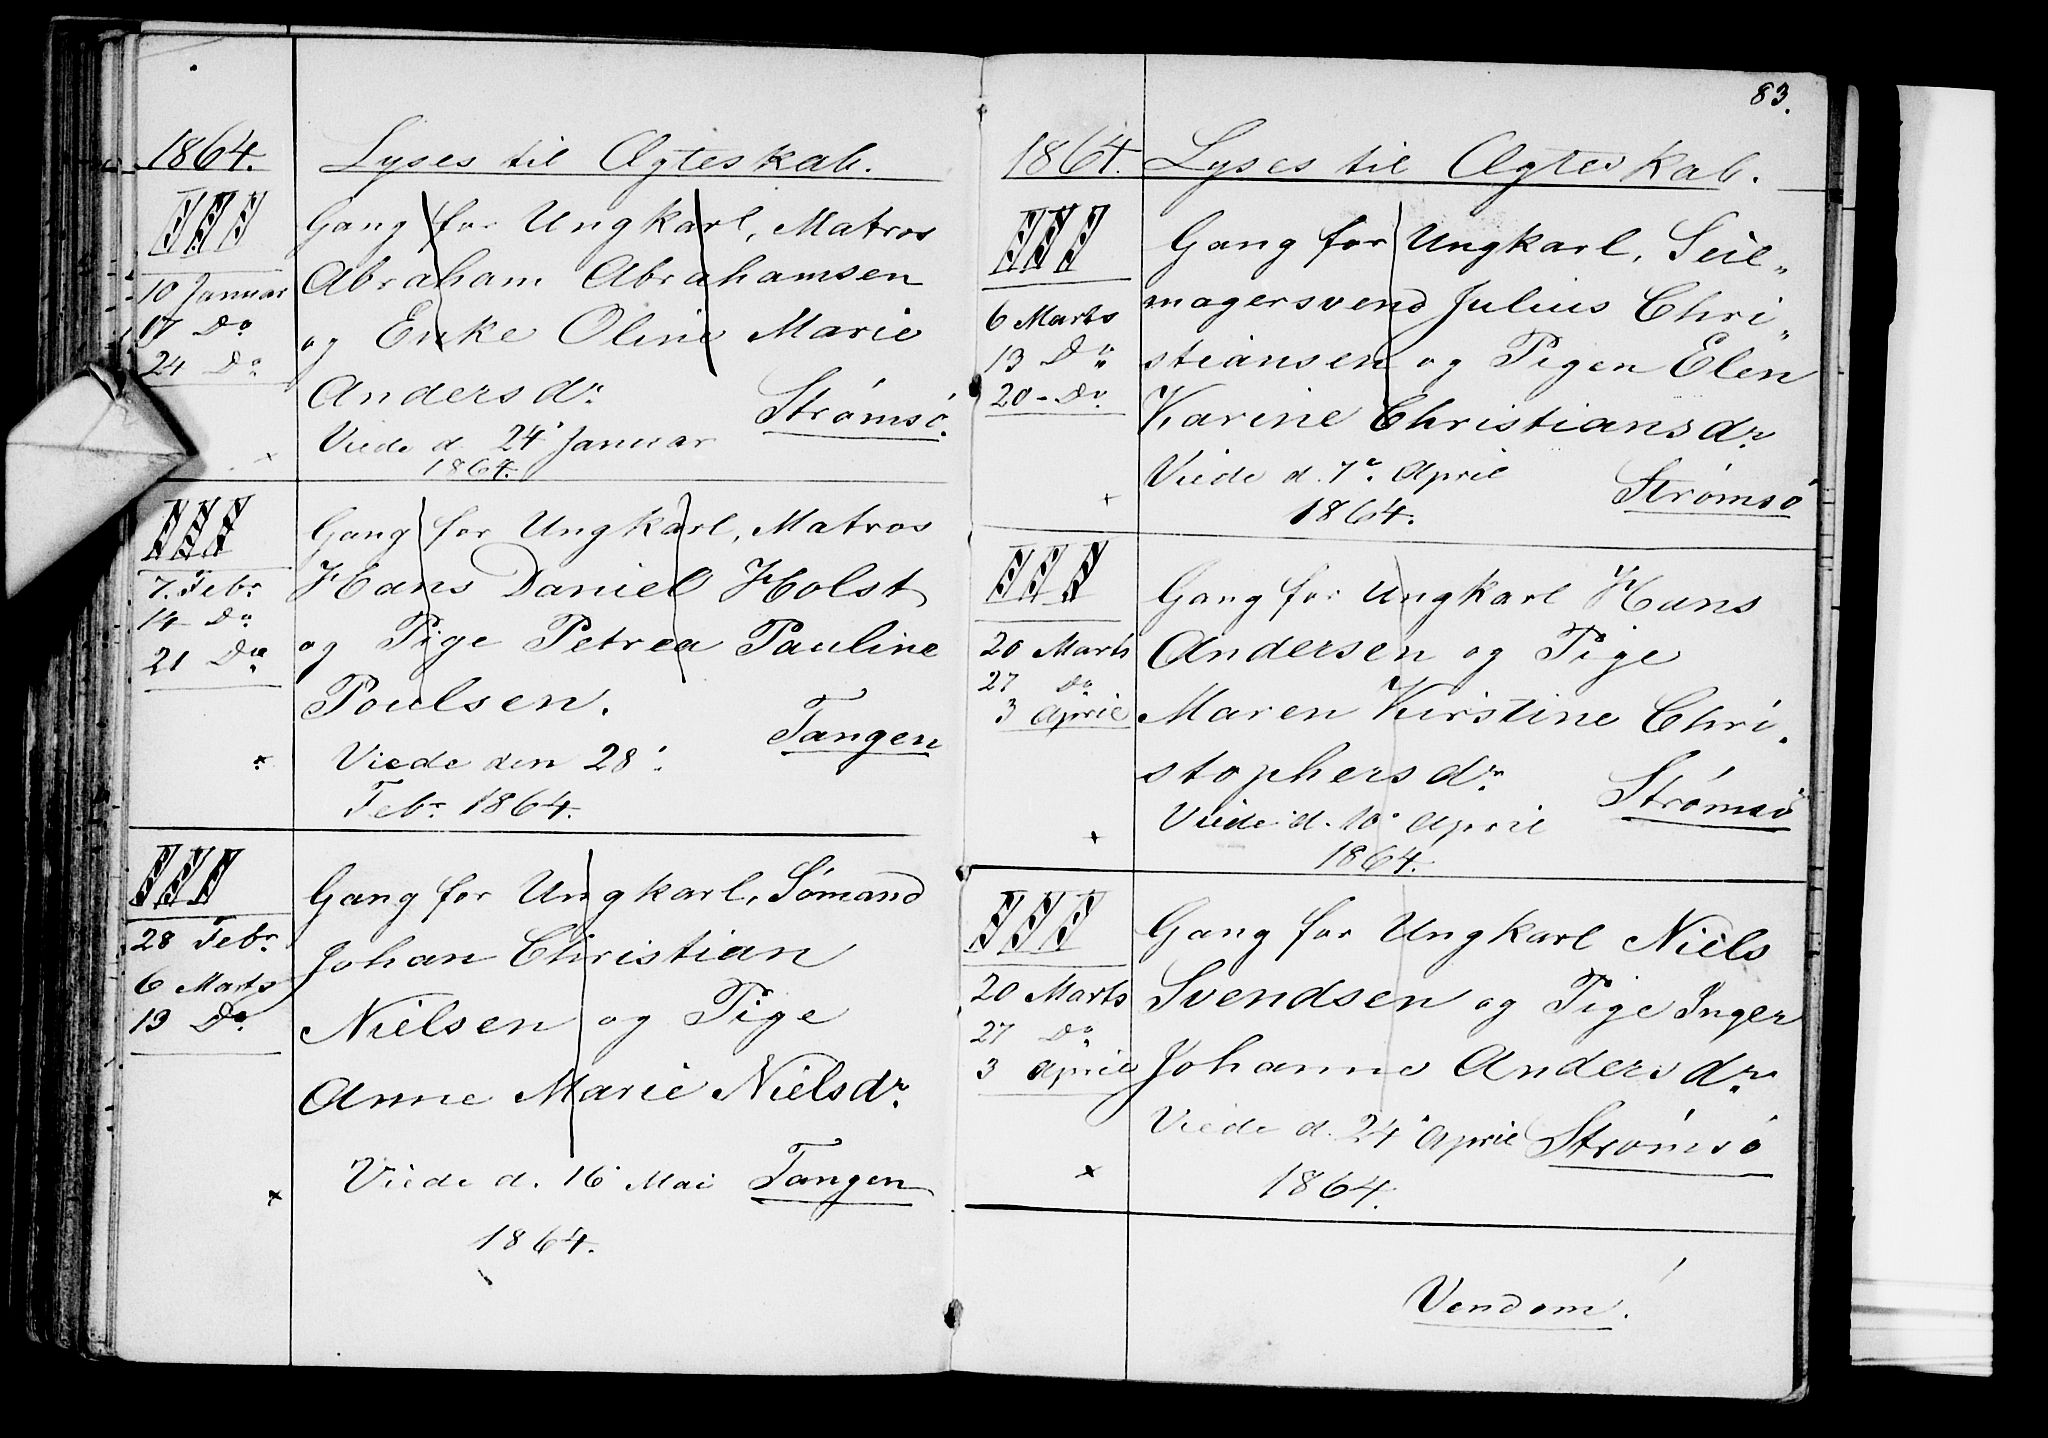 1864. Lyses til Ægteskab.
III Gang for Ungkarl, Matros
10 Januar Abraham Abrahamsen
17 Do og Enke Oline Marie
24 Do Andersdr. Strømsö.
Viede d. 24' Januar
x 1864.
III Gang for Ungkarl, Matros
7. Febr. Hans Daniel Holst
14 Do og Pige Petrea Pauline
21 Do Poulsen. Tangen
x Viede den 28'.
Febr. 1864.
III Gang for Ungkarl, Sömand
28 Febr. Johan Christian
6 Marts Nielsen og Pige
13 Do Anne Marie Nielsdr.
x Viede d. 16' Mai Tangen
1864.
83.
1864. Lyses til Ægteskab.
III Gang for Ungkarl, Seil„
6 Marts magersvend Julius Chri„
13 Do stiansen og Pigen Elen
20 - Do Karine Christiansdr.
Viede d. 7' April Strømsö
x 1864.
III Gang for Ungkarl Hans
20 Marts Andersen og Pige
27 Do
3 April Maren Kirstine Chri„
stophersdr. Strømsö
x Viede d. 10' April
1864.
III Gang for Ungkarl Niels
20 Marts Svendsen og Pige Inger
27 Do
3 April Johanne Andersdr.
Viede d. 24' April Strømsö
x 1864.
Vendom!